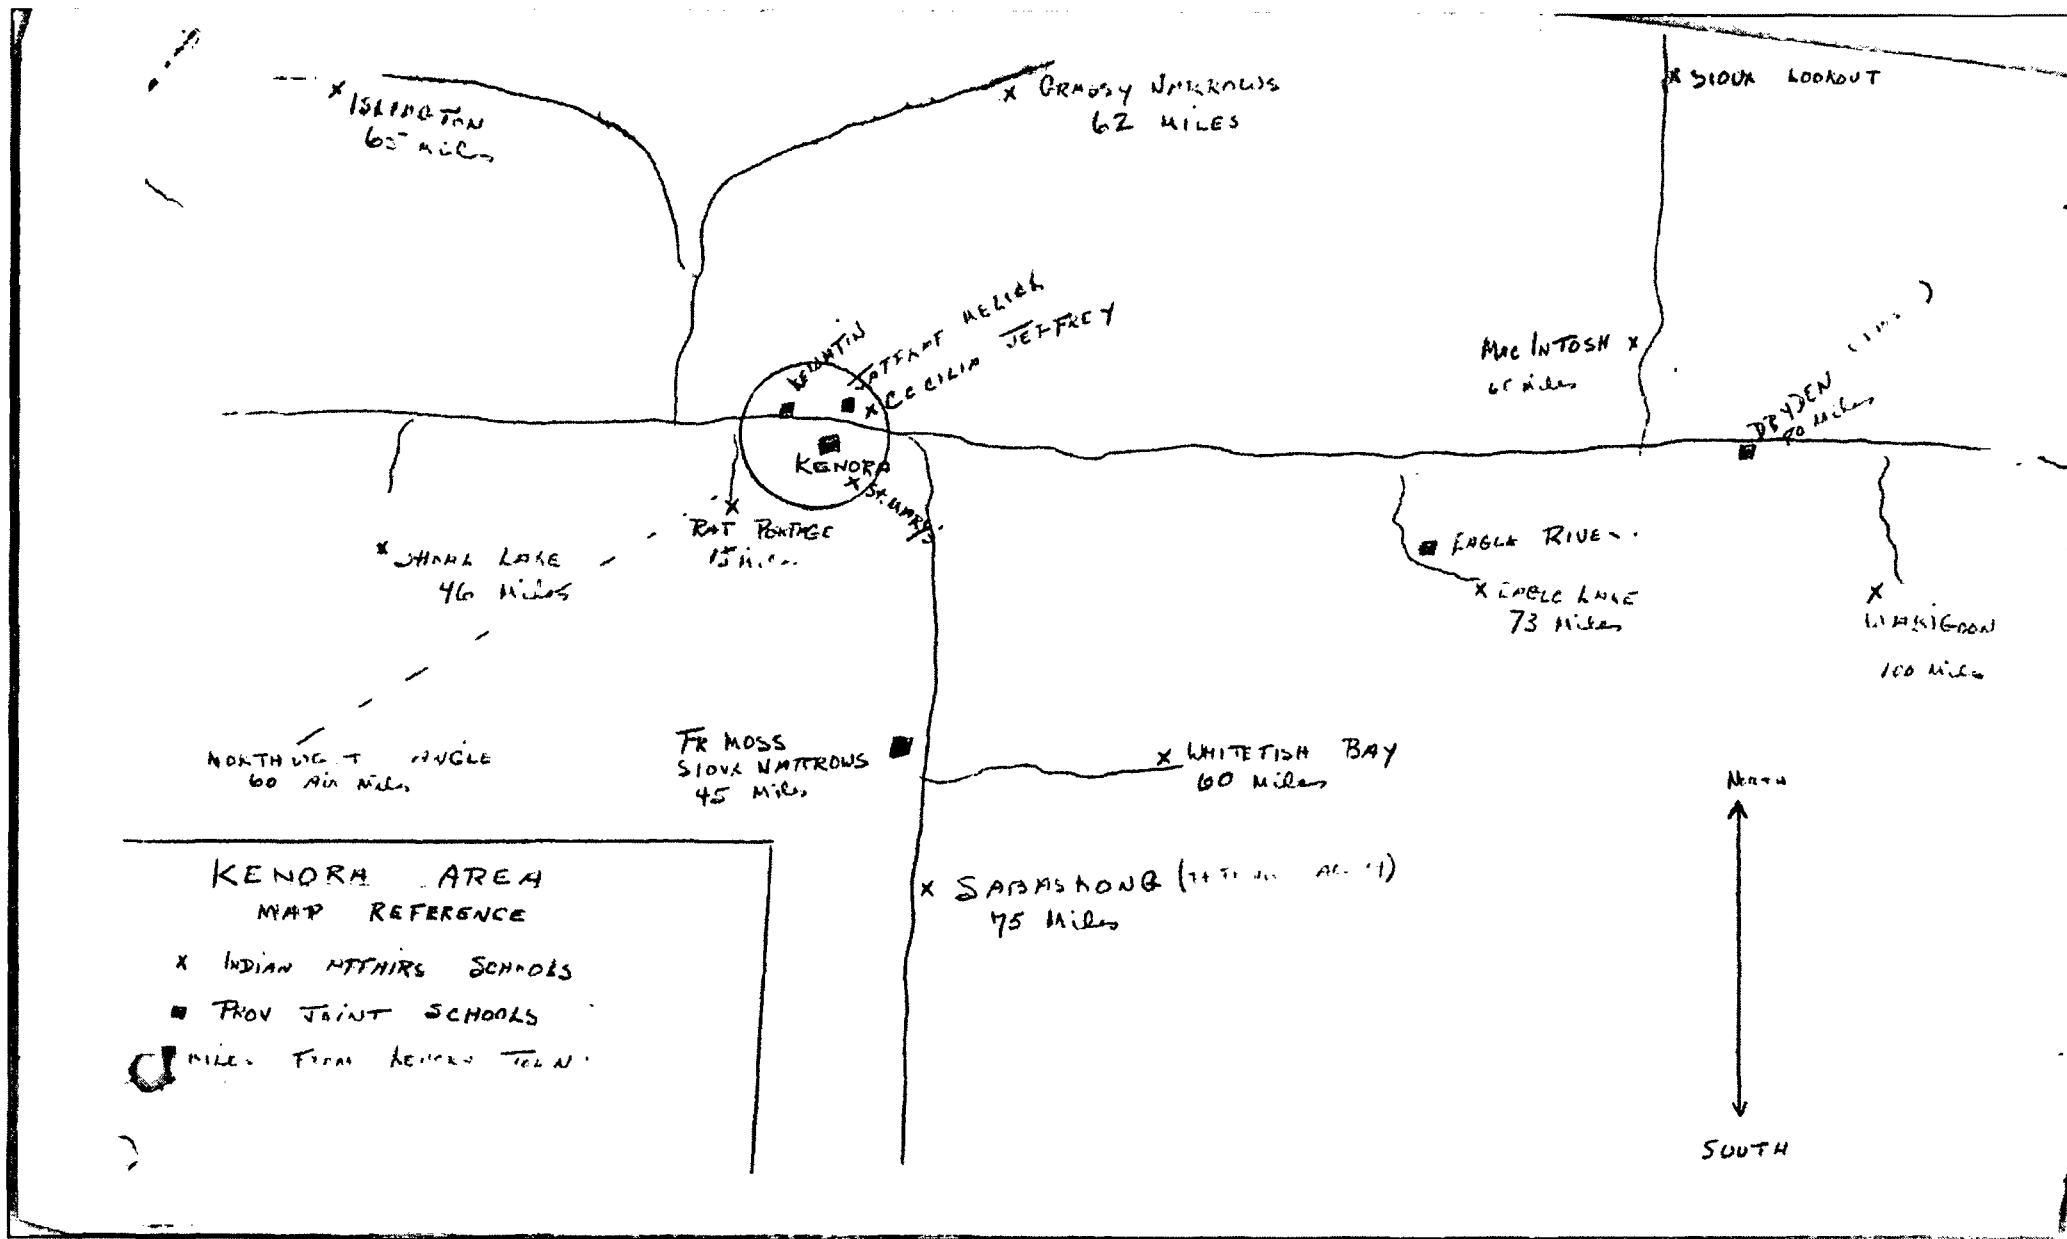 ISLINGTON
65 Miles
GRASSY NARROWS
62 MILES
SIOUX LOOKOUT
KEEWATIN
JAFFRAY MELICK
CECILIA JEFFREY
KENORA
ST. MARY'S
MAC INTOSH
65 Miles
DRYDEN
80 Miles
RAT PORTAGE
15 Miles
SHOAL LAKE
46 Miles
EAGLE RIVER
EAGLE LAKE
73 Miles
WABIGOON
100 Miles
NORTHWEST ANGLE
60 Air Miles
FR MOSS
SIOUX NARROWS
45 Miles
WHITEFISH BAY
60 Miles
SABASKONG
75 Miles
NORTH
SOUTH
KENORA AREA
MAP REFERENCE
x INDIAN AFFAIRS SCHOOLS
■ PROV JOINT SCHOOLS
MILES FROM KENORA TOWN